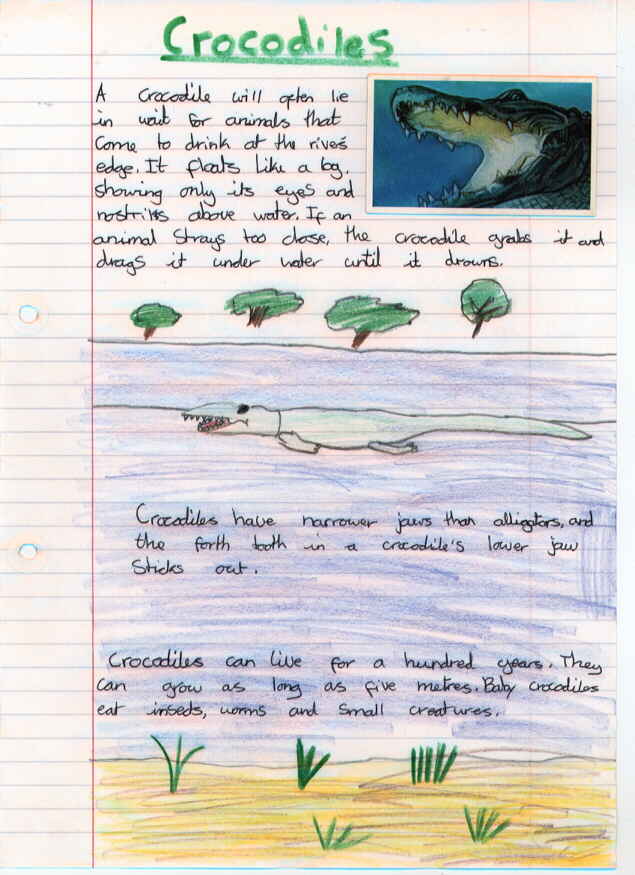 Crocodiles
A crocodile will often lie
in wait for animals that
come to drink at the river's
edge. It floats like a log,
showing only its eyes and
nostrils above water. If an
animal strays too close, the crocodile grabs it and
drags it under water until it drowns.
Crocodiles have narrower jaws than alligators, and
the forth tooth in a crocodile's lower jaw
Sticks out.
Crocodiles can live for a hundred years. They
can grow as long as five metres. Baby crocodiles
eat insects, worms and small creatures.